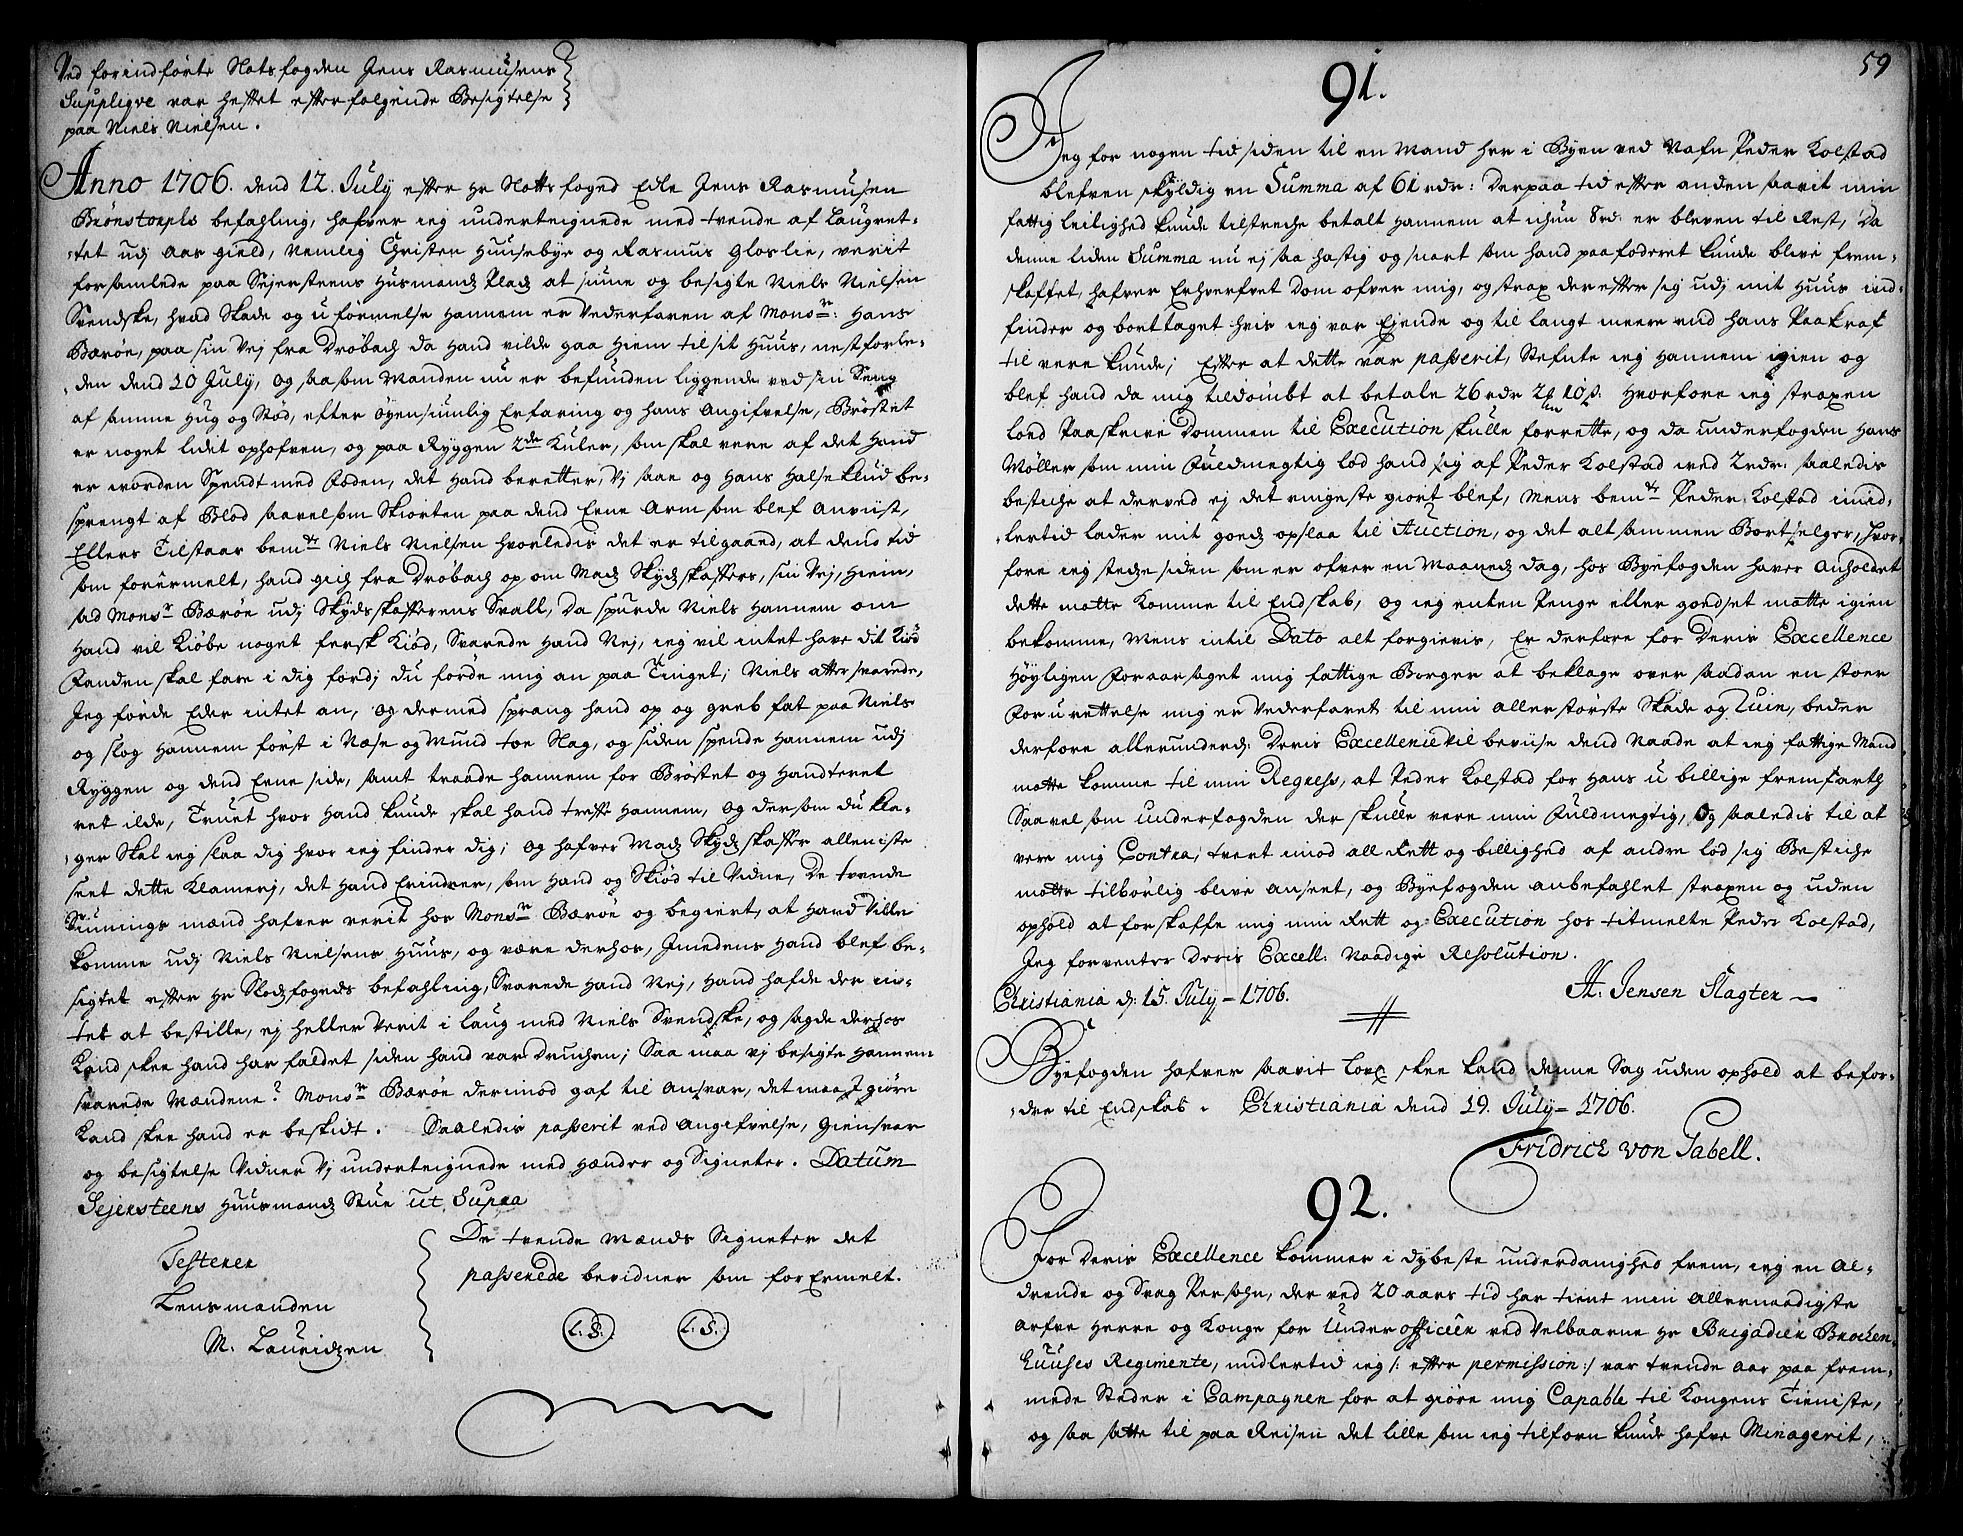 Ved forindførte Slotsfogden Jens Rasmusens
Suppliqve var heftet efterfølgende Besigtelse
paa Niels Nielsen.
Anno 1706. dend 12. July efter Hr Slottsfoged Edle Jens Rasmusen
Brønstorphs befahling, hafver ieg underteignede med tvende af Laugret-
tet udj Aas gield, Nemlig Christen Huusebye og Rasmus Gloslie, verit
forsamlede paa Sejersteens Husmands Plads at siune og besigte Niels Nielsen
Svendske, hvad Skade og uformelse hannem er Vederfaren af Monsr: Hans
Bærøe, paa sin Vej fra Drøbach da hand vilde gaa hiem til sit Huus, nestforle-
den dend 10 July, og saasom Manden nu er befunden liggende ved sin Seng
af samme Hug og Stød, efter øyensiunlig Erfaring og hans Angifvelse, Brøstet
er noget lidet ophofven, og paa Ryggen 2de Kuler, som skal vere af det Hand
er worden Spendt med Foden, det hand beretter, Vj saae og Hans Halseklud be-
sprengt af Blod saavelsom Skiorten paa dend Eene Arm som blef Anviist,
Ellers Tilstaar bemte Niels Nielsen hvorledis det er tilgaaed, at dend tid
som forermelt, hand gich fra Drøbach op om Mads Skydsskaffers, sin Vej, hiem,
sad Monsr Bærøe udj Skydsskafferens Svall, Da spurde Niels Hannem om
Hand vil Kiøbe noget fersk Kiød, Svarede Hand Nej, ieg vil intet have dit Kiød
Fanden skal fare i dig fordj du førde mig an paa Tinget; Niels atter svarede,
Jeg førde Eder intet an, og dermed sprang hand op og greb fat paa Niels
og slog Hannem først i Næse og Mund toe Slag, og siden spende Hannem udj
Ryggen og dend Eene side, samt traade hannem for Brøstet og Handteret
ret ilde, Truet hvor Hand kunde skal hand treffe Hannem, og dersom du kla-
ger Skal ieg slaa dig hvor ieg finder dig; og hafver Mads Skydsskaffer alleniste
seet dette Klamerj, det Hand Erindrer, som Hand og Skiød til Vidne, De tvende
Siunings mænd hafver verit hos Monsr Bærøe og begiert, at Hand Ville
komme udj Niels Nielsens Huus, og være derhos, Imedens Hand blef be-
sigtet efter Hr Slodsfogeds befahling, Svarede Hand Nej, Hand hafde der in-
tet at bestille, ej heller Verit i laug med Niels Svendske, og sagde derhos
Kand skee hand har faldet siden hand var Druchen; Saa maa vj besigte Hannem
svarede Mændene? Monsr Bærøe derimod gaf til Ansvar, det maa I giøre
Kand skee hand er beskidt. Saaledis passerit ved Angifvelse, Giensvar
og besigtelse Vidner Vj underteignede med Hænder og Signeter. Datum
Sejersteens Huusmands Stue ut Supra
Testerer
Lensmanden
M. Lauridzen
De tvende Mænds Signeter det
passerede bevidner som for Ermelt.
L.S. L.S.
59
91.
Jeg for nogen tid siden til en Mand her i Byen ved Nafn Peder Kolstad
blefven skyldig en Summa af 61 rdr: Derpaa tid efter anden saavit min
fattig leilighed kunde tilstreche betalt Hannem at ichun 8rd: er bleven til Rest, Da
denne liden Summa nu ej saa hastig og snart som hand paafoderet kunde blive frem-
skaffet, hafver Erhverfvet Dom ofver mig, og strax der efter sig udj mit Huus ind-
finder og borttaget hvis ieg var Ejende og til langt meere end hans Paakraf
til vere kunde; Efter at dette var passerit, Stefnte ieg Hannem igien og
blef hand da mig tildømbt at betale 26 rdr 2 10 s. Hvorfore ieg straxen
loed Paaskrive Dommen til Execution skulle forrette, og da underfogden Hans
Møller som min Fuldmegtig lod hand sig af Peder Kolstad med 2 rdr: saaledis
bestiche at derved ej det ringeste giort blef, Mens bemte Peder Kolstad imid-
lertid lader mit goeds opslaa til Auction, og det alt sammen Bortselger, hvor-
fore ieg stedse siden som er ofver en Maaneds dag, hos Byefogden haver Anholdet
dette motte Komme til Endskab, og ieg enten Penge eller goedset motte igien
bekomme, Mens intil Dato alt forgievis, Er derfore for Deris Excellence
Høyligen foraarsaget mig fattige Borger at beklage over saadan en stoer
For u rettelse mig er Vederfaret til min allerstørste Skade og Ruin, beder
derfore allerunderd: Deris Excellence vil beviise dend Naade at ieg fattige Mand
motte komme til min Regress, at Peder Kolstad for Hans u billige fremfarth
Saavelsom underfogden der skulle vere min Fuldmegtig, og saaledis til at
vere mig Contra, tvert imod all Rett og billighed af andre lod sig Bestiche
motte tilbørlig blive Anseet, og Byefogden anbefahlet straxen og uden
ophold at forskaffe mig min Rett og Execution hos titmelte Peder Kolstad,
Jeg forventer Deris Excell: Naadige Resolution.
Christiania d: 15. July - 1706.
A. Jensen Slagter
Byefogden hafver saavit Lovl skee kand denne Sag uden ophold at befor-
dre til Endskab. Christiania dend 19. July - 1706.
Fridrich von Gabell.
92.
For Deris Excellence kommer i dybeste underdanighed frem, ieg en Al-
drende og Svag Persohn, der ved 20 aars tid har tient min Allernaadigste
Arfve Herre og Konge for Under officeer ved Velbaarne Hr Brigadier Brochen-
huuses Regimente, midlertid ieg /: efter permission :/ var tvende Aar paa frem-
mede Steder i Campagnen for at giøre mig Capable til Kongens Tieniste,
og saa satte til paa Reisen det lille som ieg tilforn kunde hafve Minagerit,